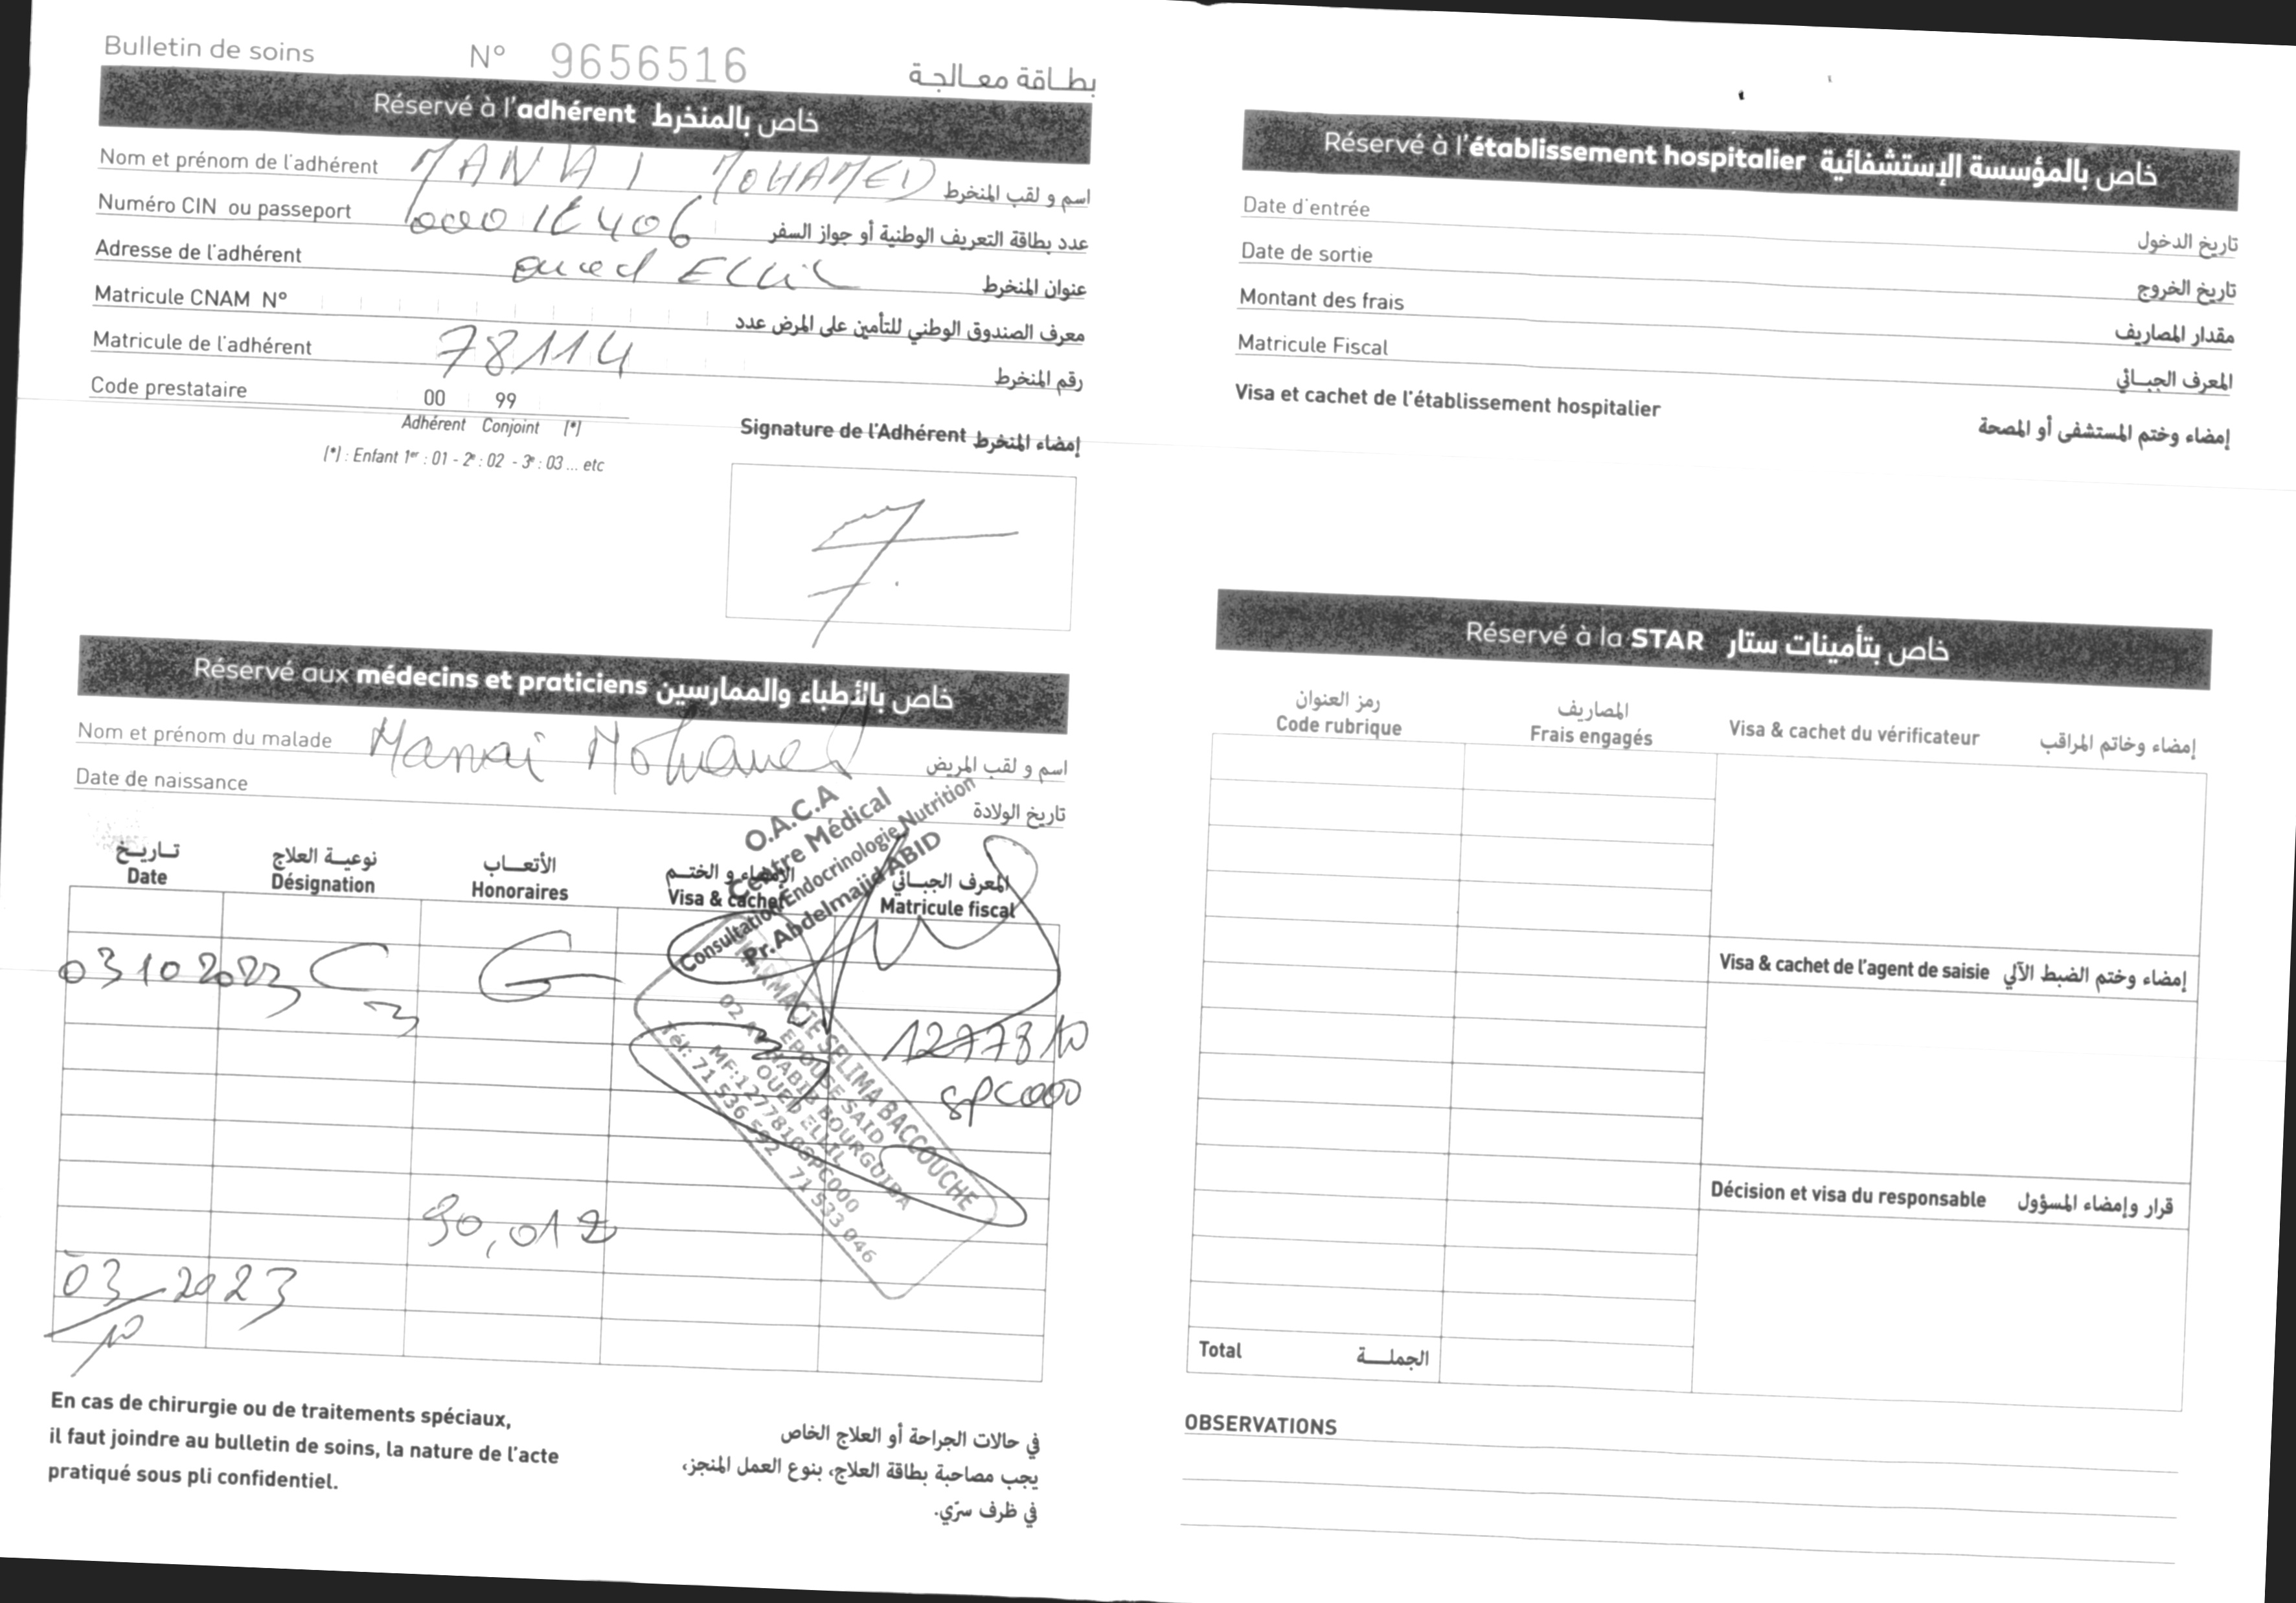 Bulletin de soins N° 9656516 بطاقة معالجة
Réservé à l'adhérent خاص بالمنخرط
Nom et prénom de l'adhérent MANAI MOHAMED اسم و لقب المنخرط
Numéro CIN ou passeport عدد بطاقة التعريف الوطنية أو جواز السفر
Adresse de l'adhérent oued Ellil عنوان المنخرط
Matricule CNAM N° معرف الصندوق الوطني للتأمين على المرض عدد
Matricule de l'adhérent 78114 رقم المنخرط
Code prestataire 00 99
Adhérent Conjoint (*)
(*) : Enfant 1er : 01 - 2e : 02 - 3e : 03 ... etc
Signature de l'Adhérent إمضاء المنخرط
Réservé aux médecins et praticiens خاص بالأطباء والممارسين
Nom et prénom du malade Manai Mohamed اسم و لقب المريض
Date de naissance تاريخ الولادة
O.A.C.A
Centre Médical
Consultation Endocrinologie Nutrition
Pr. Abdelmajid ABID
تاريخ نوعية العلاج الأتعاب الإمضاء و الختم المعرف الجبائي
Date Désignation Honoraires Visa & cachet Matricule fiscal
03 10 2023 C3 G
1277810
GPC000
PHARMACIE SELIMA BACCOUCHE
EPOUSE SAID
02 AV HABIB BOURGUIBA
OUED ELLIL
MF:1277810GPC000
Tél: 71 536 592 71 533 046
90,012
03/10 2023
En cas de chirurgie ou de traitements spéciaux,
il faut joindre au bulletin de soins, la nature de l'acte
pratiqué sous pli confidentiel.
في حالات الجراحة أو العلاج الخاص
يجب مصاحبة بطاقة العلاج، بنوع العمل المنجز،
في ظرف سرّي.
Réservé à l'établissement hospitalier خاص بالمؤسسة الإستشفائية
Date d'entrée تاريخ الدخول
Date de sortie تاريخ الخروج
Montant des frais مقدار المصاريف
Matricule Fiscal المعرف الجبائي
Visa et cachet de l'établissement hospitalier إمضاء وختم المستشفى أو المصحة
Réservé à la STAR خاص بتأمينات ستار
رمز العنوان المصاريف
Code rubrique Frais engagés Visa & cachet du vérificateur إمضاء وخاتم المراقب
Visa & cachet de l'agent de saisie إمضاء وختم الضبط الآلي
Décision et visa du responsable قرار وإمضاء المسؤول
Total الجملة
OBSERVATIONS